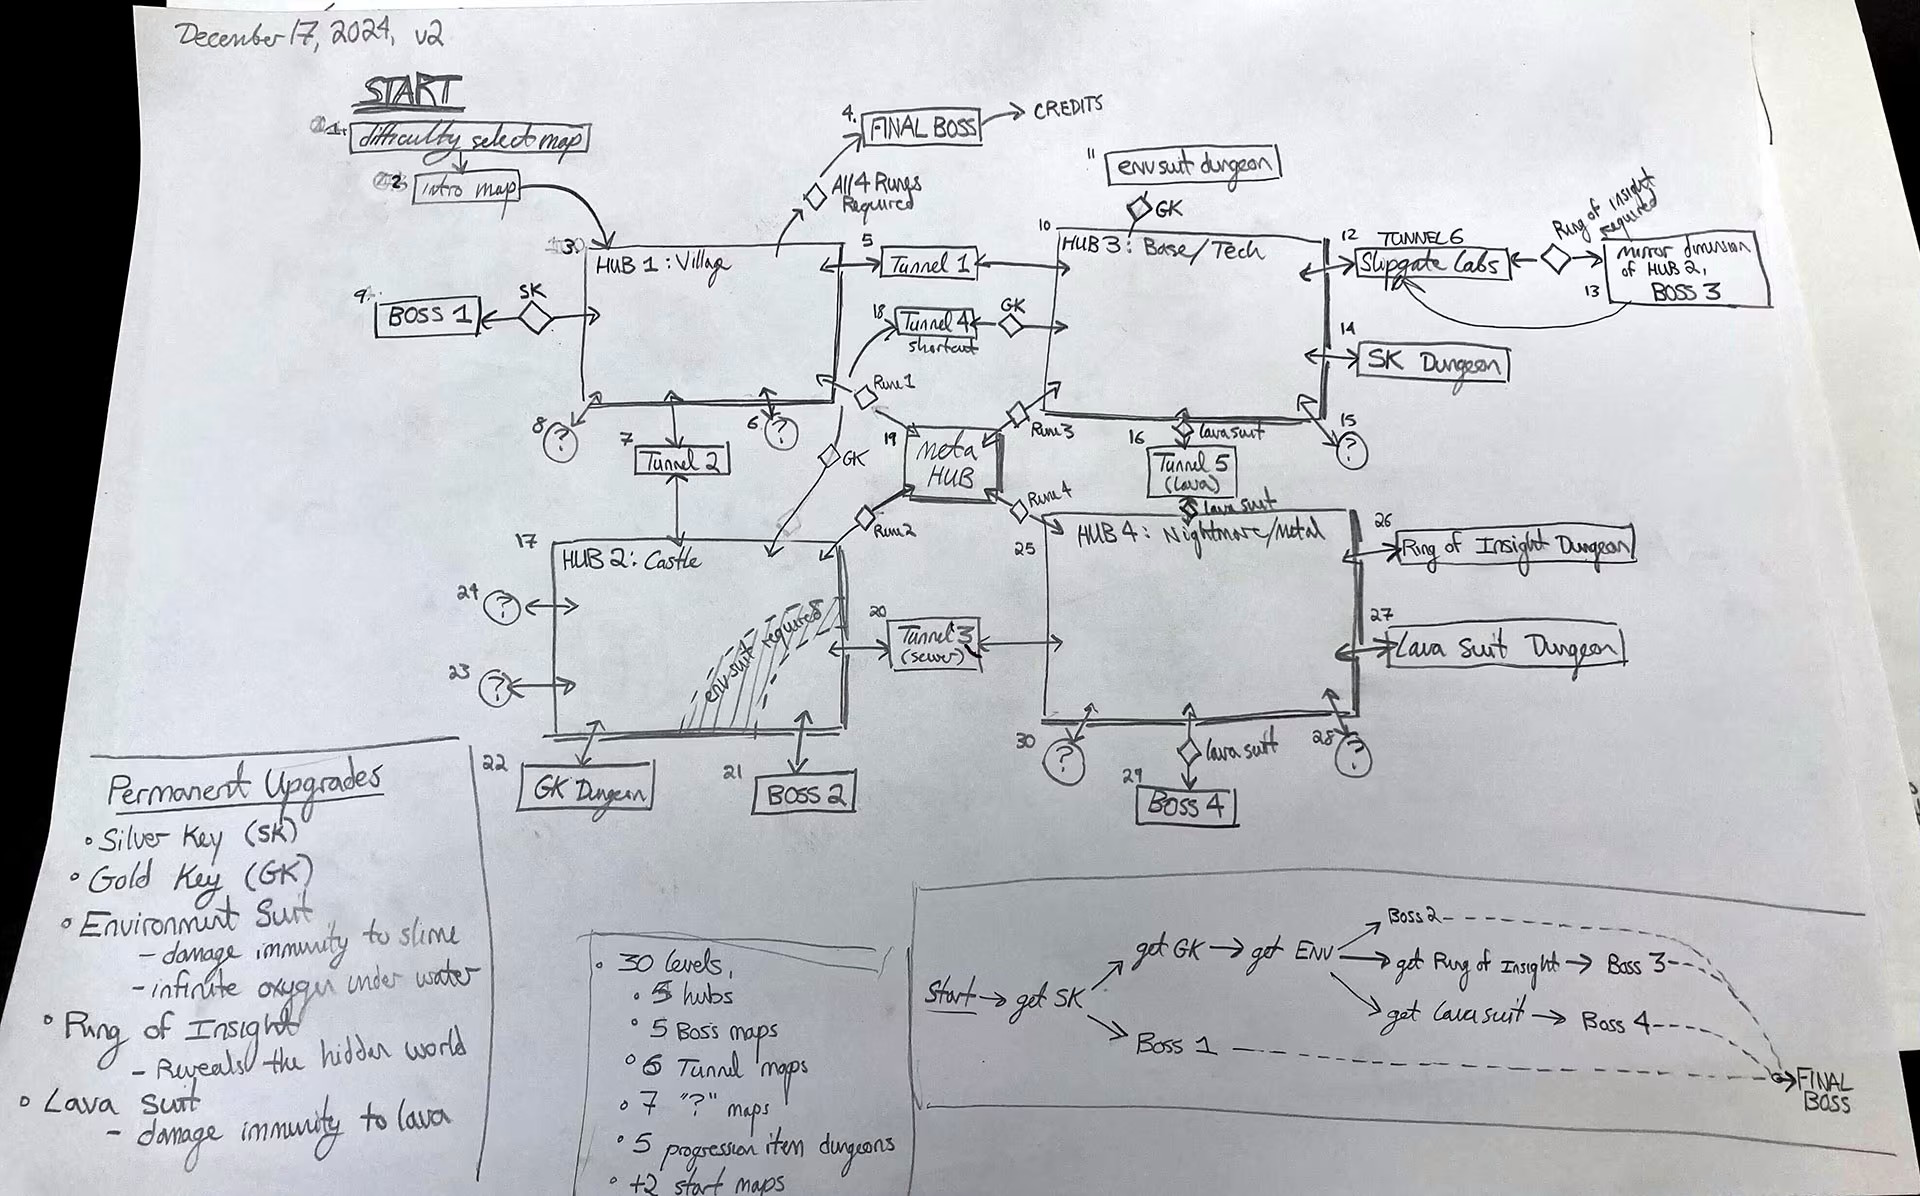 December 17, 2024, v2
START
1.
difficulty select map
2
intro map
4.
FINAL BOSS
CREDITS
All 4 Runes
Required
11
env suit dungeon
GK
3.
HUB 1: Village
5
Tunnel 1
10
HUB 3: Base/Tech
12
TUNNEL 6
Slipgate Labs
Ring of Insight
required
mirror dimension
of HUB 2,
BOSS 3
13
9.
BOSS 1
SK
18
Tunnel 4
shortcut
GK
14
SK Dungeon
Rune 1
8
?
7
Tunnel 2
6
?
GK
19
meta
HUB
Rune 3
16
lava suit
Tunnel 5
(lava)
lava suit
15
?
Rune 2
Rune 4
17
HUB 2: Castle
25
HUB 4: Nightmare/Metal
26
Ring of Insight Dungeon
24
?
env suit required
20
Tunnel 3
(sewer)
27
Lava Suit Dungeon
23
?
22
GK Dungeon
21
BOSS 2
30
?
lava suit
28
?
29
BOSS 4
Permanent Upgrades
• Silver Key (SK)
• Gold Key (GK)
• Environment Suit
- damage immunity to slime
- infinite oxygen under water
• Ring of Insight
- Reveals the hidden world
• Lava Suit
- damage immunity to lava
• 30 levels,
• 5 hubs
• 5 Boss maps
• 6 Tunnel maps
• 7 "?" maps
• 5 progression item dungeons
• +2 start maps
Start
get SK
get GK
get ENV
Boss 2
get Ring of Insight
Boss 3
get lava suit
Boss 4
Boss 1
FINAL
BOSS